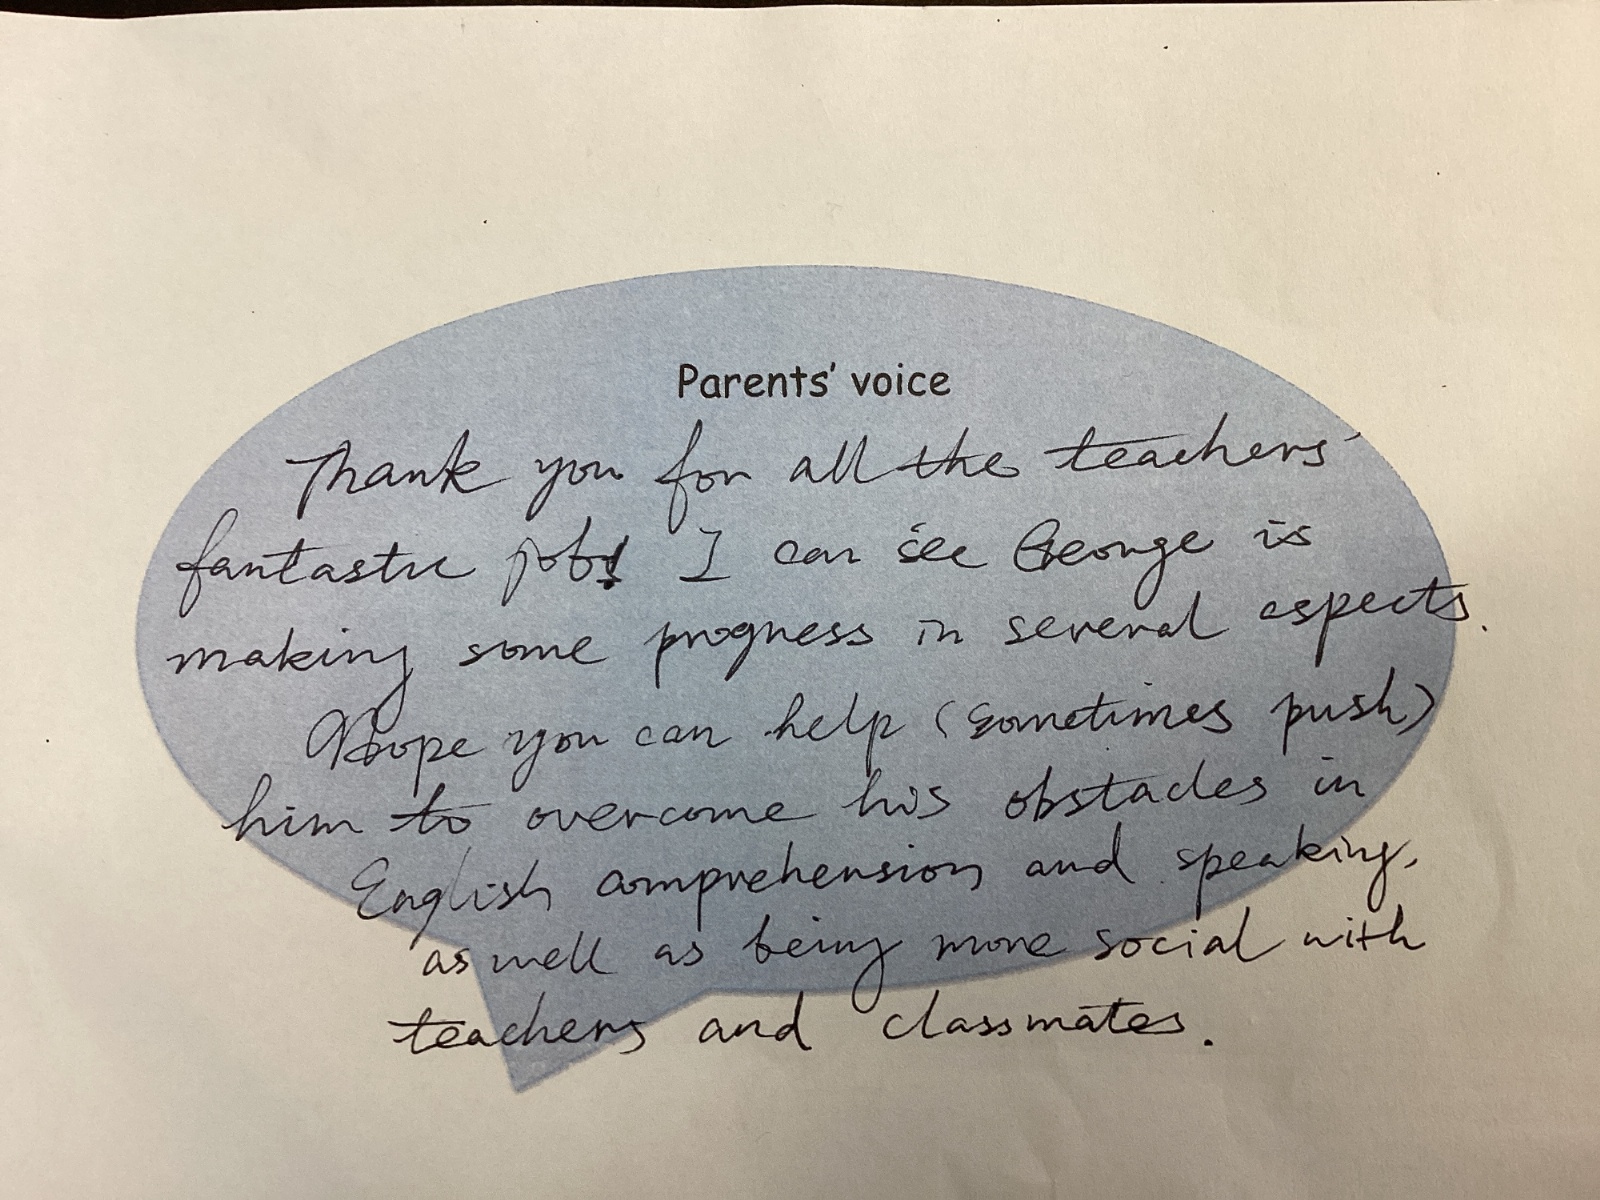 Parents' voice
Thank you for all the teachers'
fantastic job! I can see George is
making some progress in several aspects.
Hope you can help (sometimes push)
him to overcome his obstacles in
English comprehension and speaking,
as well as being more social with
teachers and classmates.